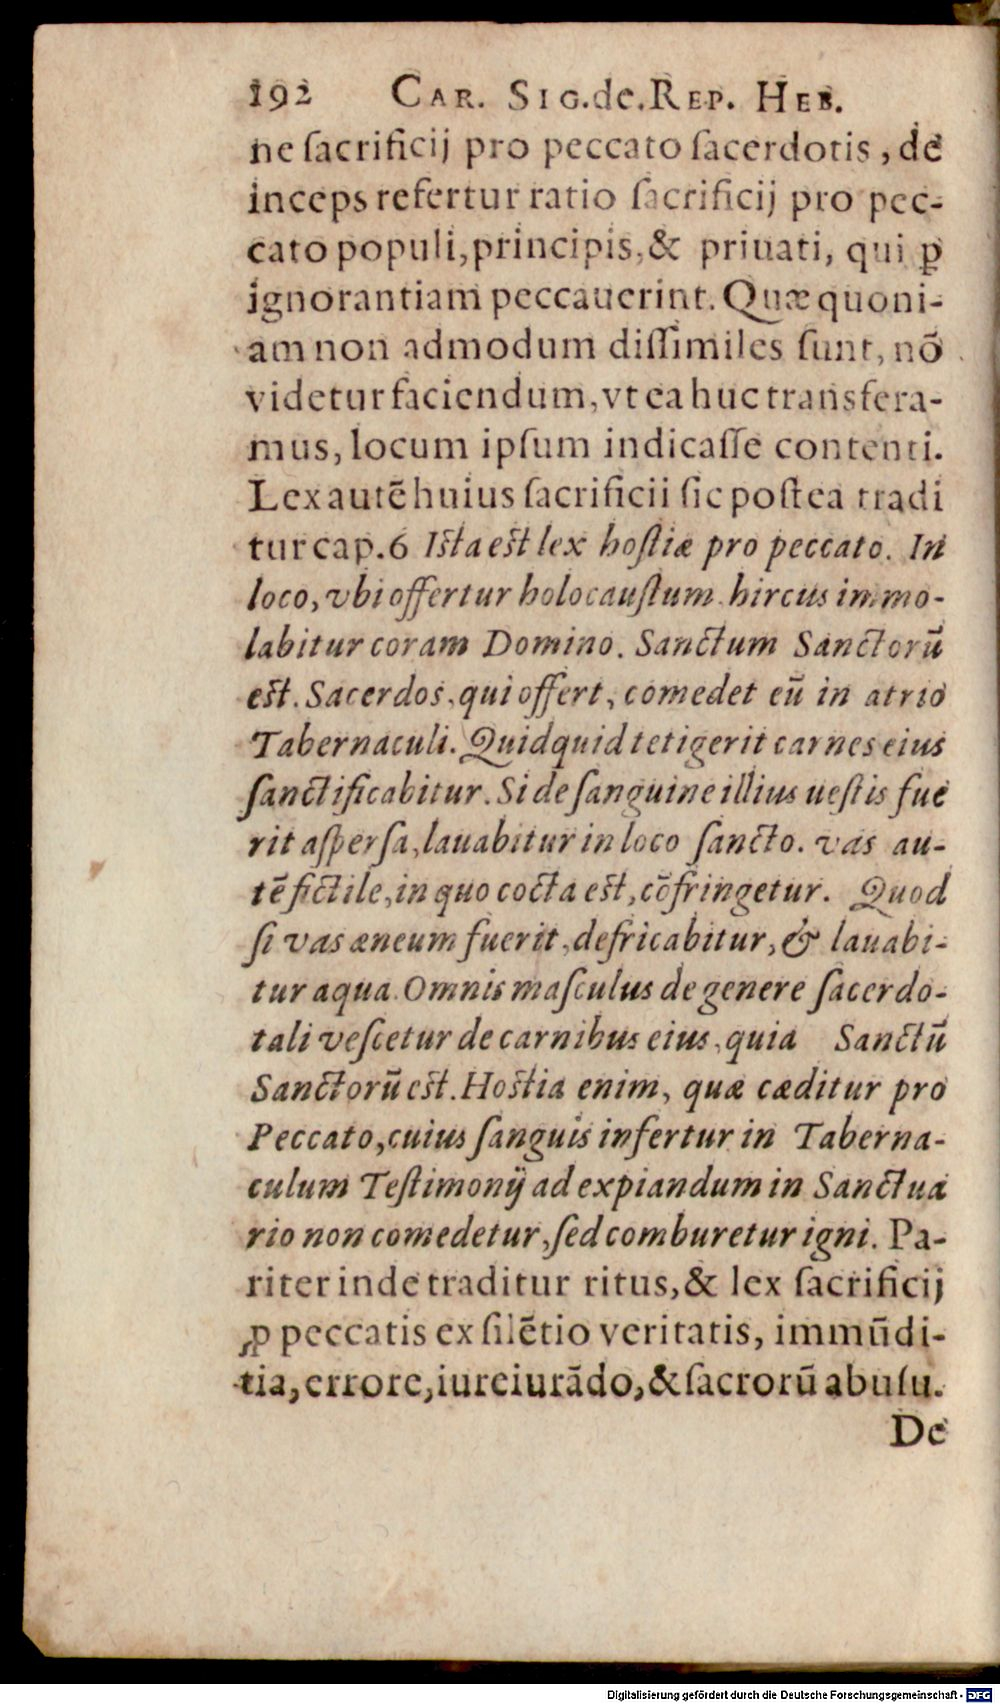 192 CAR. SIG.de.REP. HEB.
ne ſacrificij pro peccato ſacerdotis, de
inceps refertur ratio ſacrificij pro pec-
cato populi, principis, & priuati, qui ꝑ
ignorantiam peccauerint. Quæ quoni-
am non admodum diſſimiles ſunt, nõ
videtur faciendum, vt ea huc transfera-
mus, locum ipſum indicaſſe contenti.
Lex autē huius ſacrificii ſic poſtea tradi
tur cap. 6 Iſta eſt lex hoſtiæ pro peccato. In
loco, vbi offertur holocauſtum hircus immo-
labitur coram Domino. Sanctum Sanctorū
eſt. Sacerdos, qui offert, comedet eū in atrio
Tabernaculi. Quidquid tetigerit carnes eius
ſanctificabitur. Si de ſanguine illius ueſtis fue
rit aſperſa, lauabitur in loco ſancto. vas au-
tē fictile, in quo cocta eſt, cõfringetur. Quod
ſi vas æneum fuerit, defricabitur, & lauabi-
tur aqua. Omnis maſculus de genere ſacerdo-
tali veſcetur de carnibus eius, quia Sanctū
Sanctorū eſt. Hoſtia enim, quæ cæditur pro
Peccato, cuius ſanguis infertur in Taberna-
culum Teſtimonij ad expiandum in Sanctua
rio non comedetur, ſed comburetur igni. Pa-
riter inde traditur ritus, & lex ſacrificij
ꝓ peccatis ex ſilētio veritatis, immūdi-
tia, errore, iureiurādo, & ſacrorū abuſu.
De
Digitalisierung gefördert durch die Deutsche Forschungsgemeinschaft - DFG